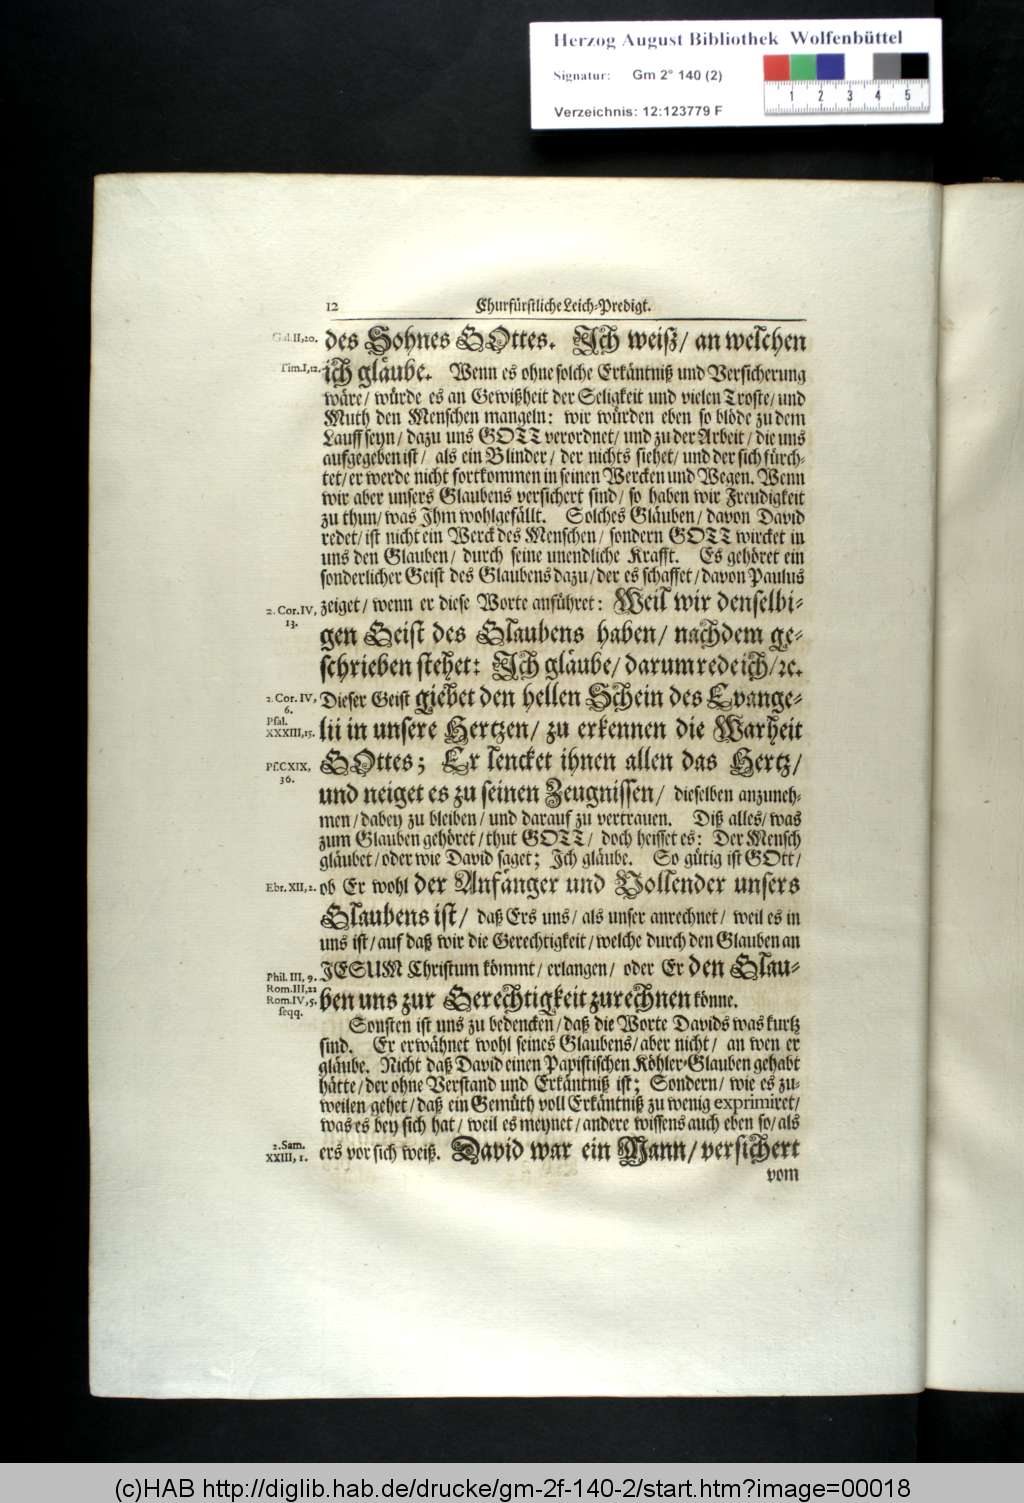 Herzog August Bibliothek Wolfenbüttel
Signatur: Gm 2° 140 (2)
1 2 3 4 5
Verzeichnis: 12:123779 F
12 Churfürstliche Leich-Predigt.
Gal. II, 20. des Sohnes GOttes. Ich weiß/ an welchen
Tim. I, 12. ich gläube. Wenn es ohne solche Erkäntniß und Versicherung
wäre/ würde es an Gewißheit der Seligkeit und vielen Troste/ und
Muth den Menschen mangeln: wir würden eben so blöde zu dem
Lauff seyn/ dazu uns GOTT verordnet/ und zu der Arbeit/ die uns
aufgegeben ist/ als ein Blinder/ der nichts siehet/ und der sich fürch-
tet/ er werde nicht fortkommen in seinen Wercken und Wegen. Wenn
wir aber unsers Glaubens versichert sind/ so haben wir Freudigkeit
zu thun/ was Ihm wohlgefällt. Solches Gläuben/ davon David
redet/ ist nicht ein Werck des Menschen/ sondern GOTT wircket in
uns den Glauben/ durch seine unendliche Krafft. Es gehöret ein
sonderlicher Geist des Glaubens dazu/ der es schaffet/ davon Paulus
2. Cor. IV, 13. zeiget/ wenn er diese Worte anführet: Weil wir denselbi-
gen Geist des Glaubens haben/ nachdem ge-
schrieben stehet: Ich gläube/ darum rede ich/ ꝛc.
2. Cor. IV, 6. Dieser Geist giebet den hellen Schein des Evange-
Psal. XXXIII, 15. lii in unsere Hertzen/ zu erkennen die Warheit
Ps. CXIX, 36. GOttes; Er lencket ihnen allen das Hertz/
und neiget es zu seinen Zeugnissen/ dieselben anzuneh-
men/ dabey zu bleiben/ und darauf zu vertrauen. Diß alles/ was
zum Glauben gehöret/ thut GOTT/ doch heisset es: Der Mensch
gläubet/ oder wie David saget; Ich gläube. So gütig ist GOtt/
Ebr. XII, 2. ob Er wohl der Anfänger und Vollender unsers
Glaubens ist/ daß Ers uns/ als unser anrechnet/ weil es in
uns ist/ auf daß wir die Gerechtigkeit/ welche durch den Glauben an
Phil. III, 9. JESUM Christum kömmt/ erlangen/ oder Er den Glau-
Rom. III, 22 Rom. IV, 5. seqq. ben uns zur Gerechtigkeit zurechnen könne.
Sonsten ist uns zu bedencken/ daß die Worte Davids was kurtz
sind. Er erwähnet wohl seines Glaubens/ aber nicht/ an wen er
gläube. Nicht daß David einen Papistischen Köhler-Glauben gehabt
hätte/ der ohne Verstand und Erkäntniß ist; Sondern/ wie es zu-
weilen gehet/ daß ein Gemüth voll Erkäntniß zu wenig exprimiret/
was es bey sich hat/ weil es meynet/ andere wissens auch eben so/ als
2. Sam. XXIII, 1. ers vor sich weiß. David war ein Mann/ versichert
vom
(c)HAB http://diglib.hab.de/drucke/gm-2f-140-2/start.htm?image=00018